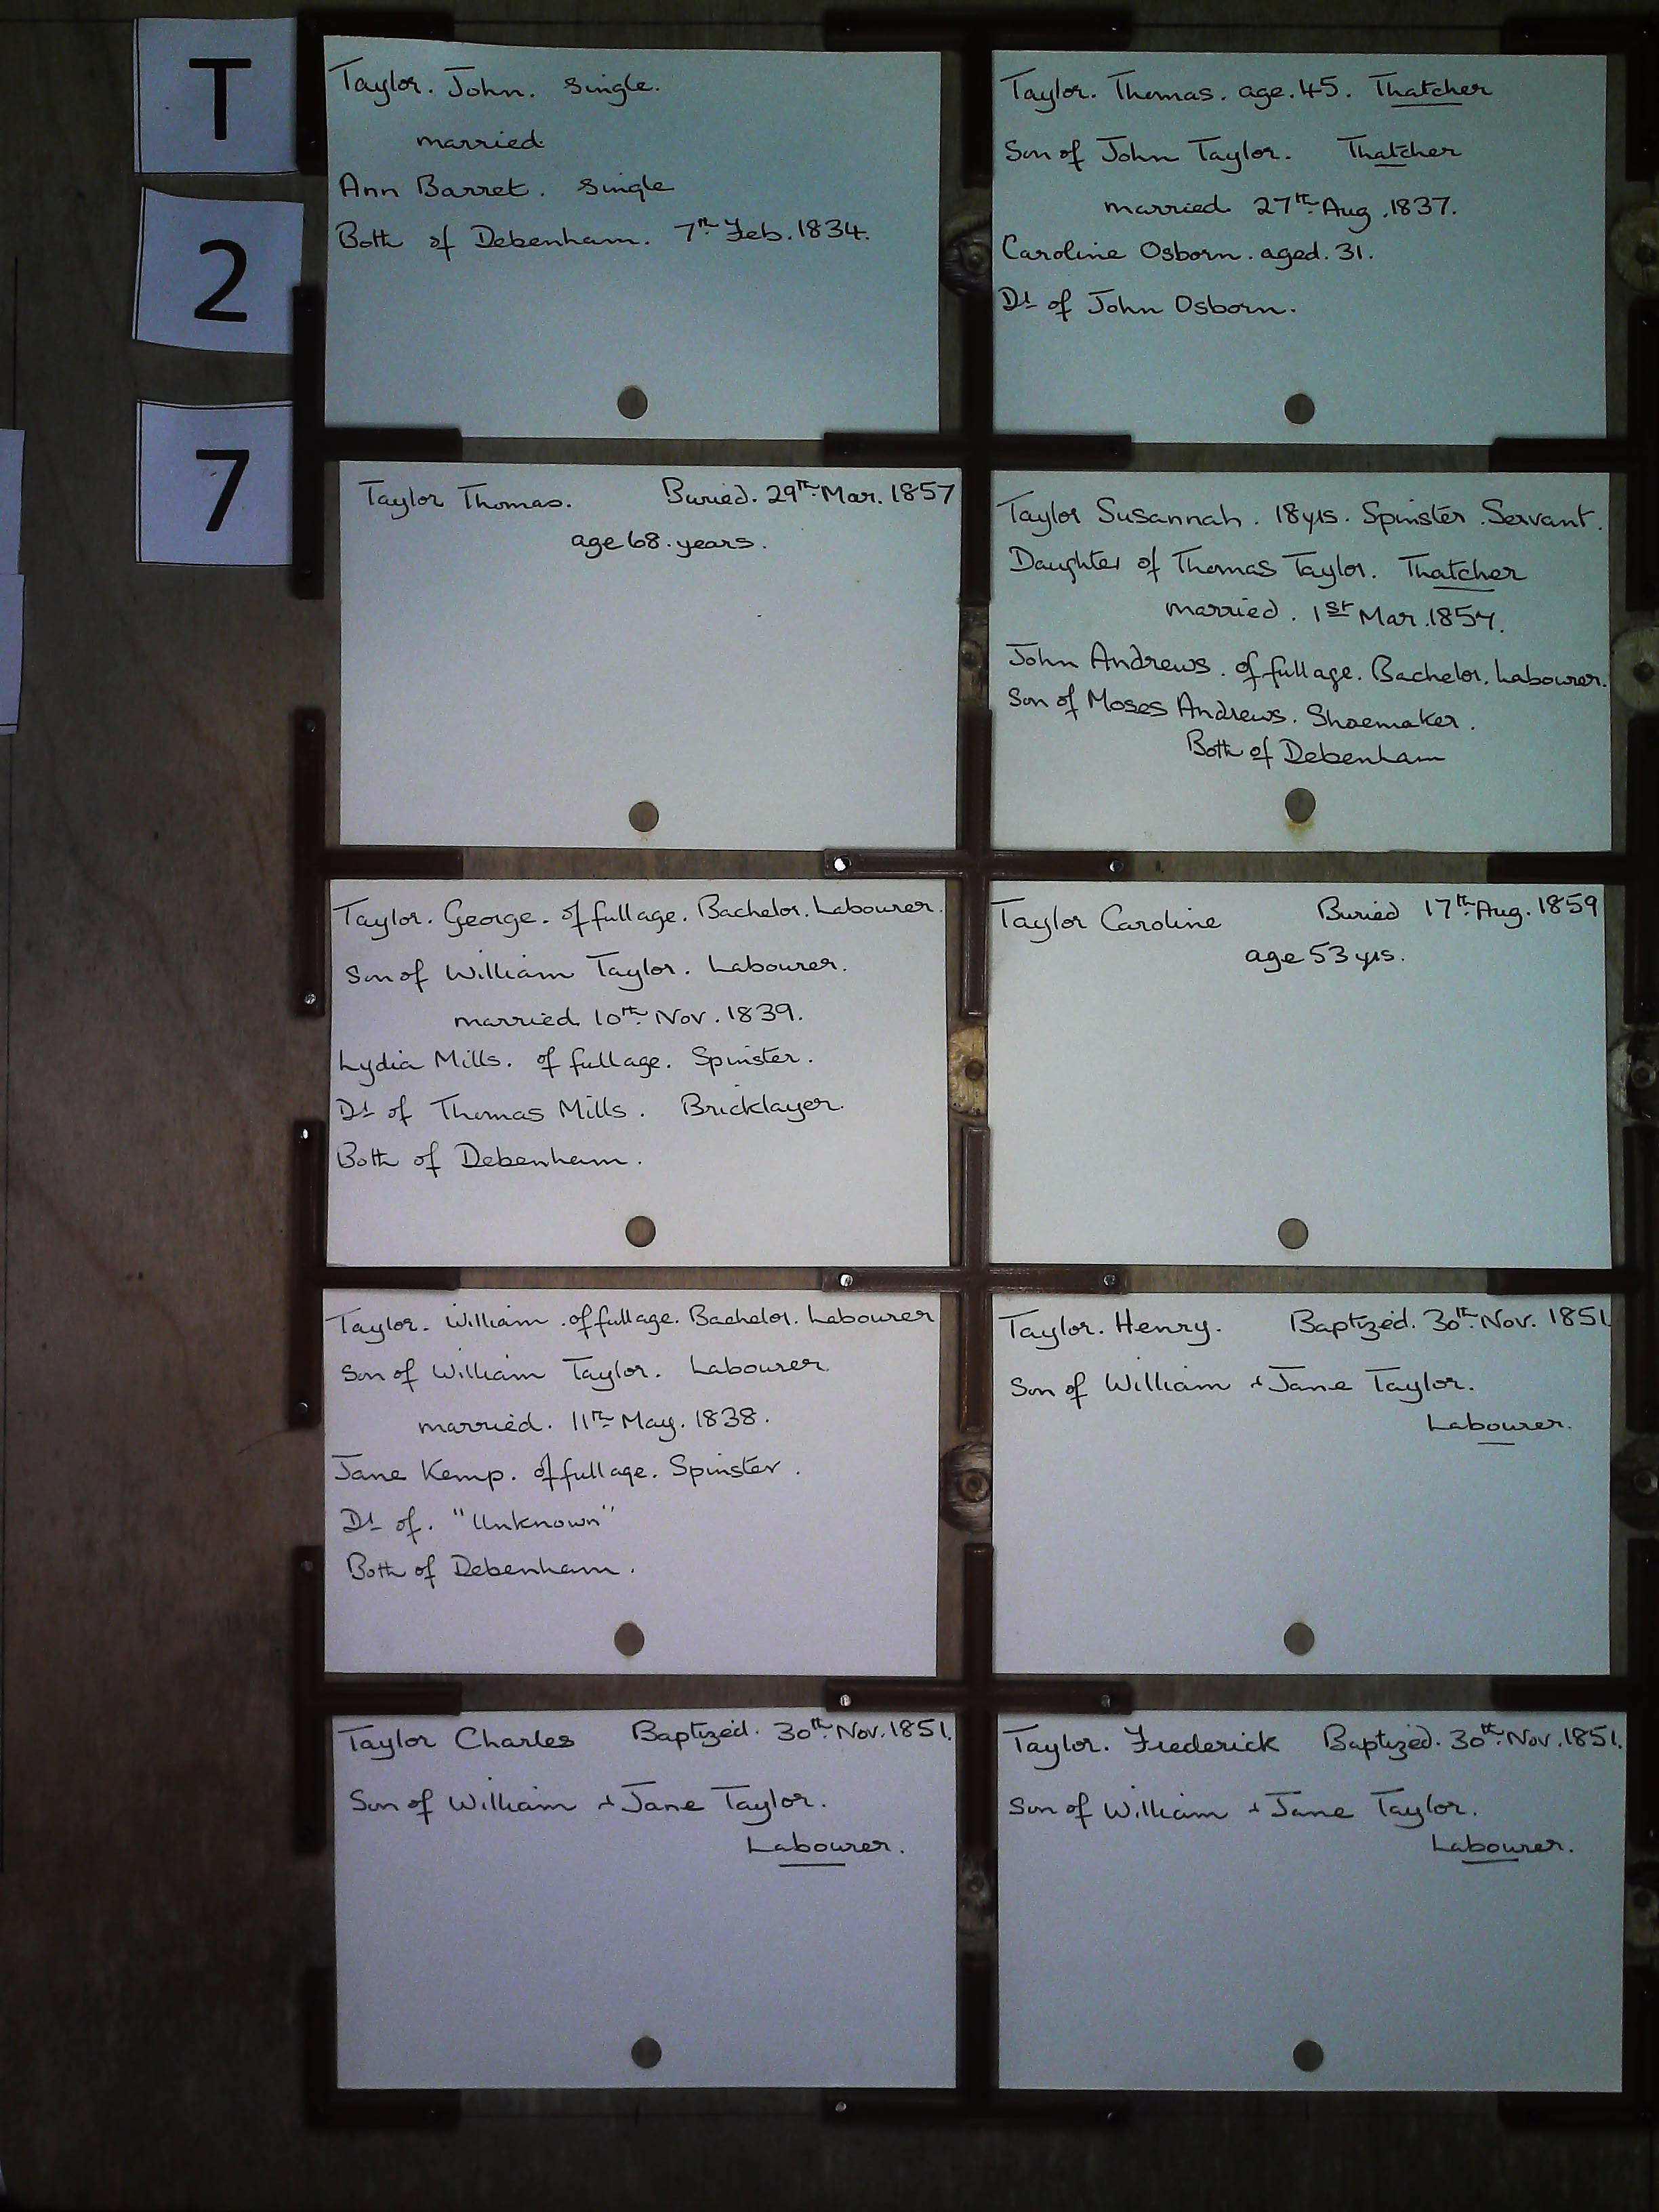 T
2
7
Taylor. John. Single.
married.
Ann Barret. Single
Both of Debenham. 7th Feb. 1834.
Taylor. Thomas. age. 45. Thatcher
Son of John Taylor. Thatcher
married 27th Aug. 1837.
Caroline Osborn. aged. 31.
Dt of John Osborn.
Taylor Thomas. Buried. 29th Mar. 1857
age 68. years.
Taylor Susannah. 18 yrs. Spinster. Servant.
Daughter of Thomas Taylor. Thatcher
married. 1st Mar. 1857.
John Andrews. of full age. Bachelor. Labourer.
Son of Moses Andrews. Shoemaker.
Both of Debenham
Taylor. George. of full age. Bachelor. Labourer.
Son of William Taylor. Labourer.
married 10th Nov. 1839.
Lydia Mills. of full age. Spinster.
Dt of Thomas Mills. Bricklayer.
Both of Debenham.
Taylor Caroline Buried 17th Aug. 1859
age 53 yrs.
Taylor. William. of full age. Bachelor. Labourer
Son of William Taylor. Labourer.
married. 11th May. 1838.
Jane Kemp. of full age. Spinster.
Dt of. "Unknown"
Both of Debenham.
Taylor. Henry. Baptized. 30th Nov. 1851
Son of William & Jane Taylor.
Labourer.
Taylor Charles Baptized. 30th Nov. 1851.
Son of William & Jane Taylor.
Labourer.
Taylor. Frederick Baptized. 30th Nov. 1851.
Son of William & Jane Taylor.
Labourer.